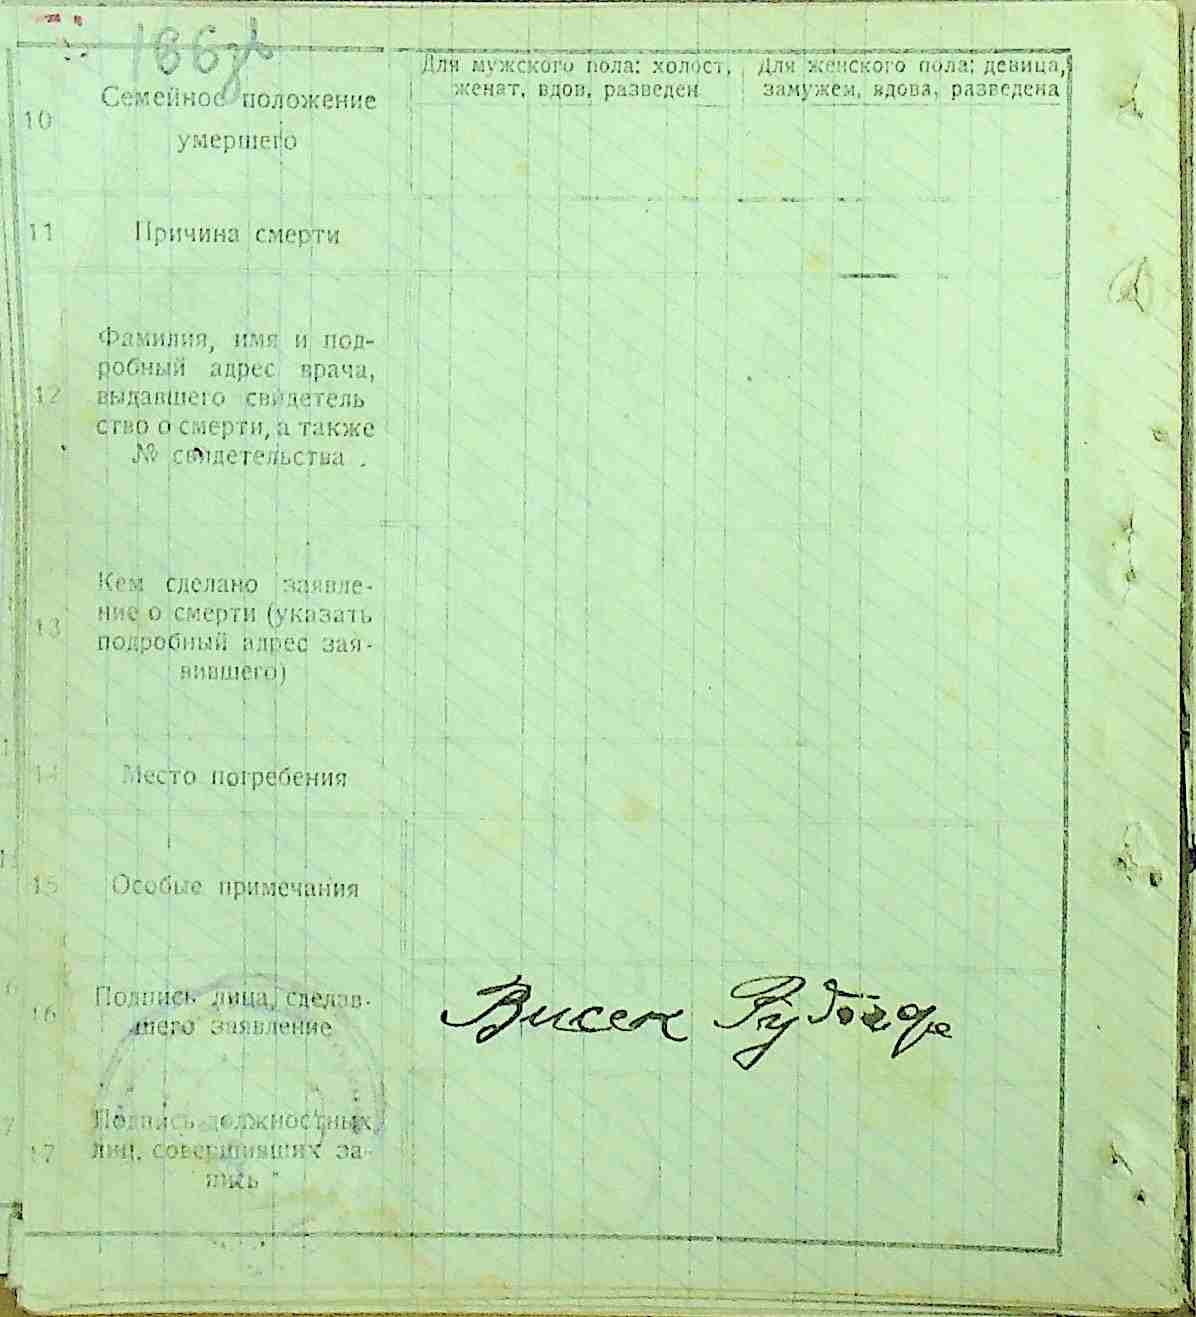 186
Для мужского пола: холост,
женат, вдов, разведен
Для женского пола: девица,
замужем, вдова, разведена
10
Семейное положение
умершего
11
Причина смерти
12
Фамилия, имя и под-
робный адрес врача,
выдавшего свидетель
ство о смерти, а также
№ свидетельства .
13
Кем сделано заявле-
ние о смерти (указать
подробный адрес зая-
вившего)
14
Место погребения
15
Особые примечания
16
Подпись лица, сделав-
шего заявление
Висен
17
Подпись должностных
лиц, совершивших за-
пись